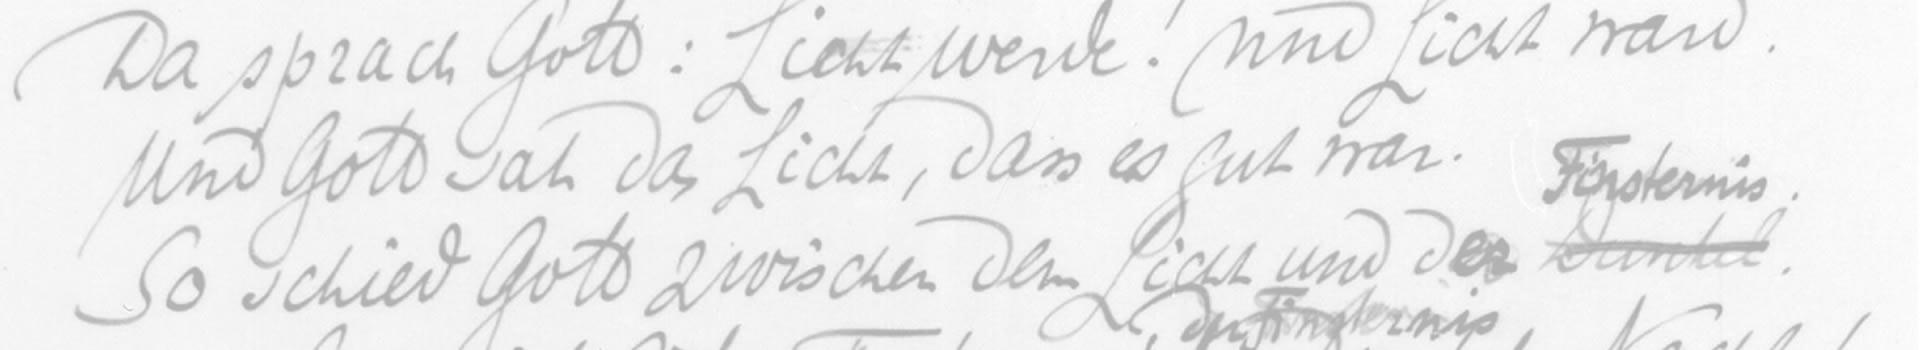 Da sprach Gott: Licht werde! Und Licht ward.
Und Gott sah das Licht, dass es gut war.
Finsternis.
So schied Gott zwischen dem Licht und der Dunkel.
der Finsternis